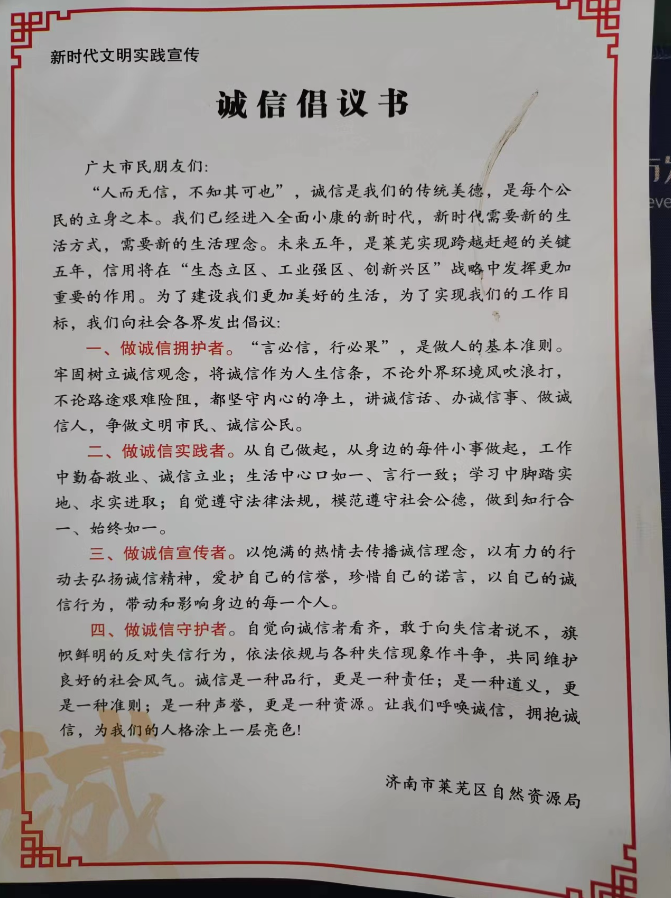 新时代文明实践宣传
诚信倡议书
广大市民朋友们:
“人而无信，不知其可也”，诚信是我们的传统美德，是每个公
民的立身之本。我们已经进入全面小康的新时代，新时代需要新的生
活方式，需要新的生活理念。未来五年，是莱芜实现跨越赶超的关键
五年，信用将在“生态立区、工业强区、创新兴区”战略中发挥更加
重要的作用。为了建设我们更加美好的生活，为了实现我们的工作目
标，我们向社会各界发出倡议:
一、做诚信拥护者。“言必信，行必果”，是做人的基本准则。
牢固树立诚信观念，将诚信作为人生信条，不论外界环境风吹浪打，
不论路途艰难险阻，都坚守内心的净土，讲诚信话、办诚信事、做诚
信人，争做文明市民、诚信公民。
二、做诚信实践者。从自己做起，从身边的每件小事做起，工作
中勤奋敬业、诚信立业；生活中心口如一、言行一致；学习中脚踏实
地、求实进取；自觉遵守法律法规，模范遵守社会公德，做到知行合
一、始终如一。
三、做诚信宣传者。以饱满的热情去传播诚信理念，以有力的行
动去弘扬诚信精神，爱护自己的信誉，珍惜自己的诺言，以自己的诚
信行为，带动和影响身边的每一个人。
四、做诚信守护者。自觉向诚信者看齐，敢于向失信者说不，旗
帜鲜明的反对失信行为，依法依规与各种失信现象作斗争，共同维护
良好的社会风气。诚信是一种品行，更是一种责任；是一种道义，更
是一种准则；是一种声誉，更是一种资源。让我们呼唤诚信，拥抱诚
信，为我们的人格涂上一层亮色!
济南市莱芜区自然资源局
诚